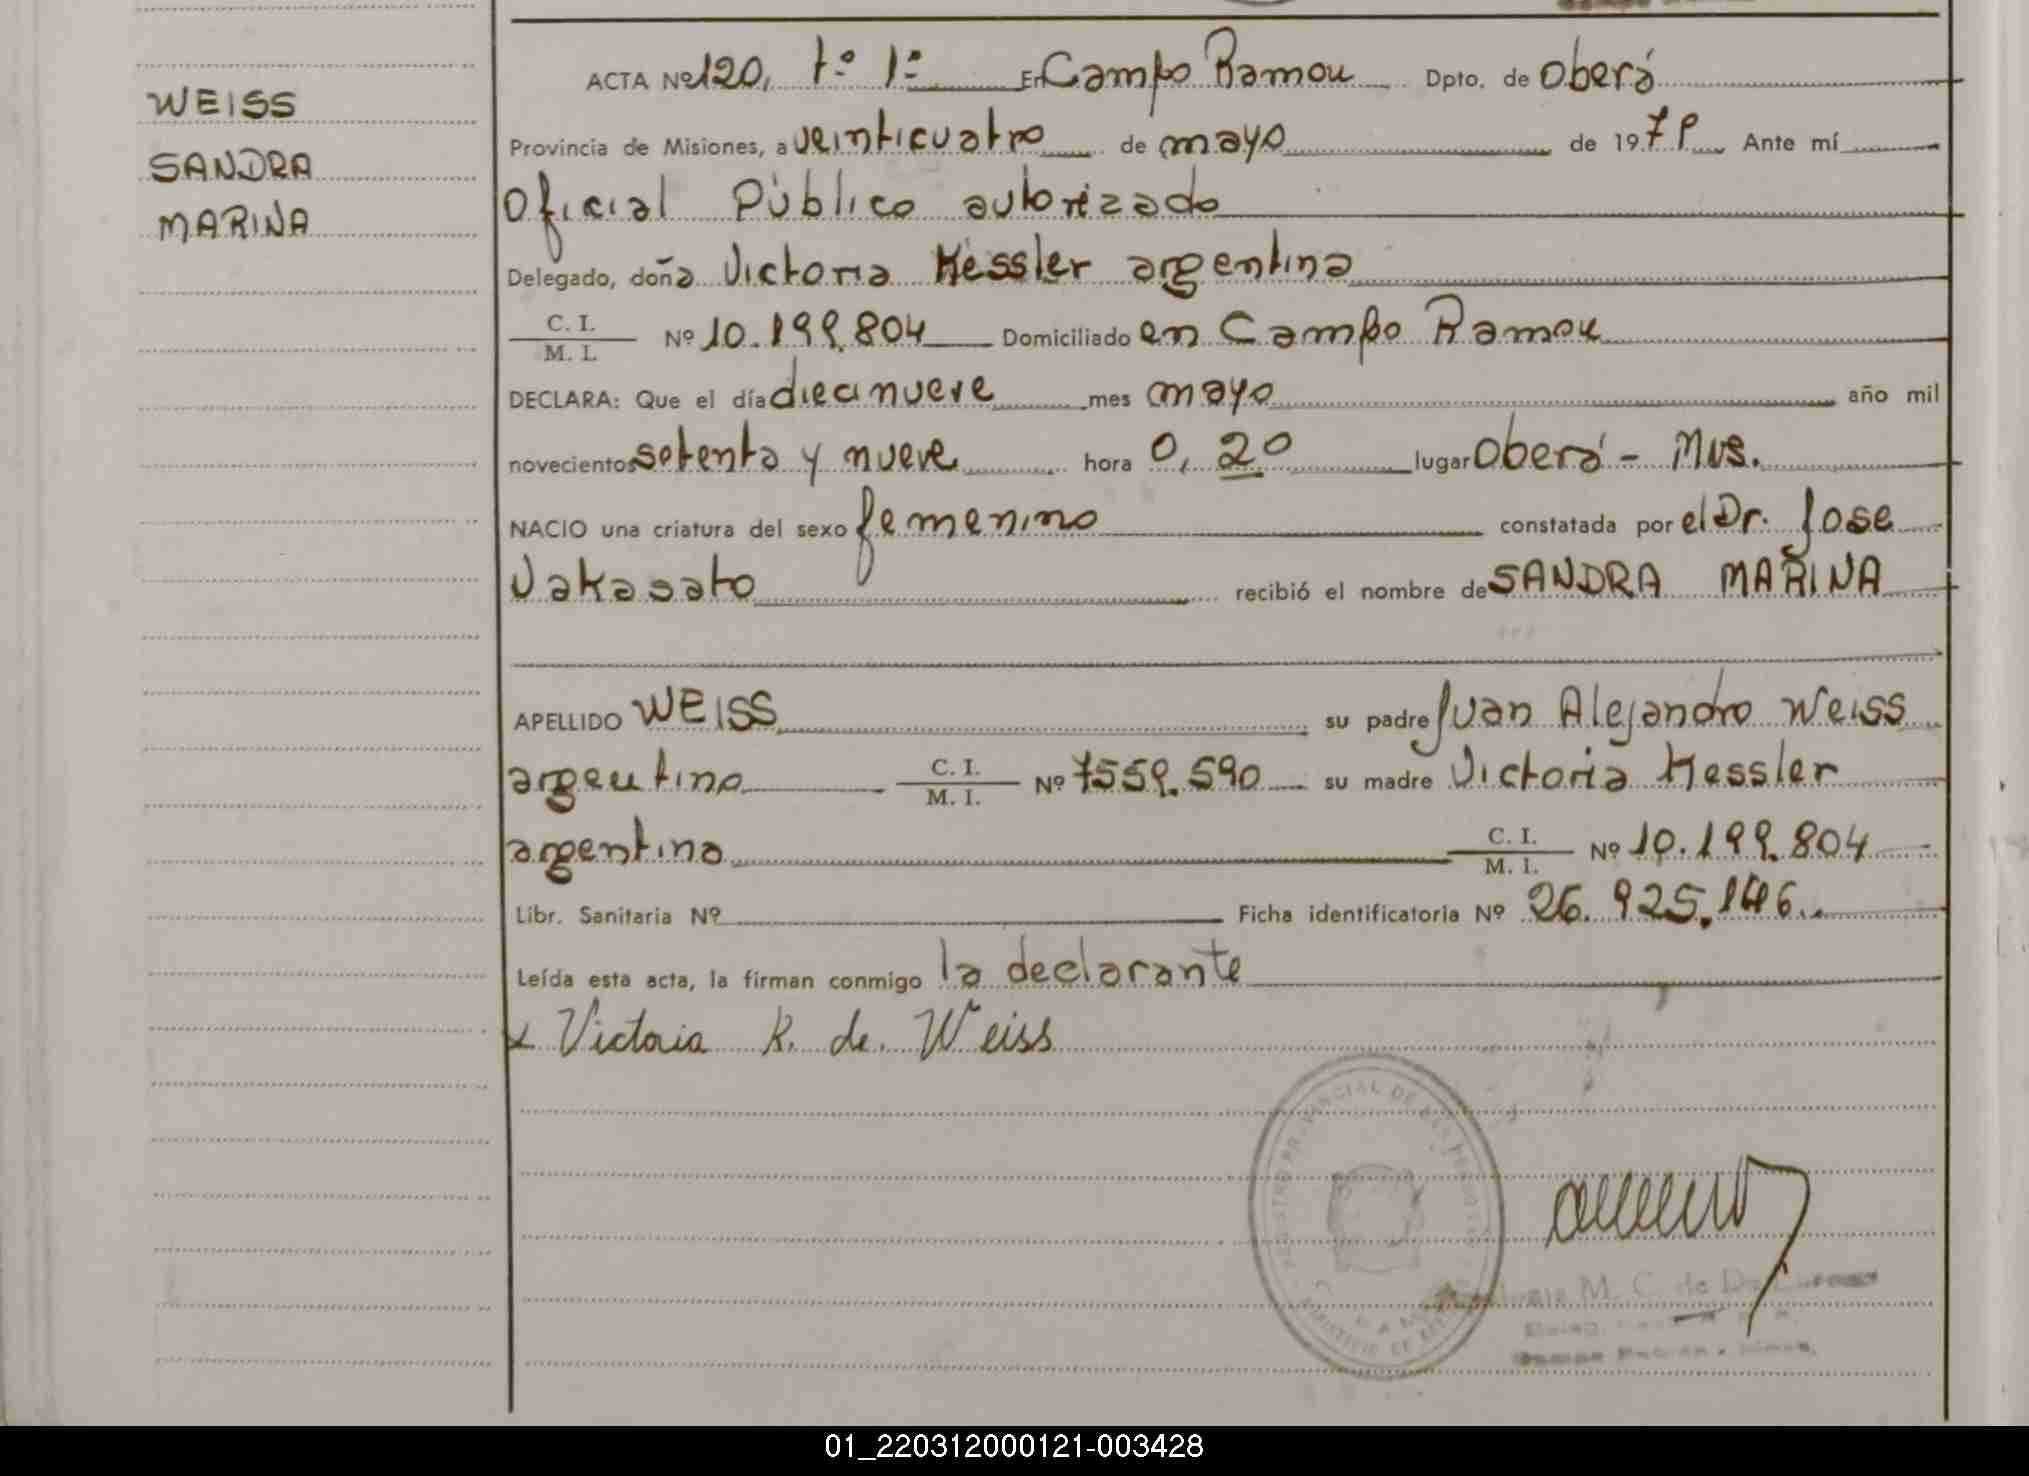 WEISS
SANDRA
MARINA
ACTA Nº 120, tº 1º En Campo Ramou Dpto. de Oberá
Provincia de Misiones, a veinticuatro de mayo de 1979 Ante mí
Oficial Público autorizado
Delegado, doña Victoria Kessler argentina
C. I.
M. I. Nº 10.199.804 Domiciliado en Campo Ramou
DECLARA: Que el día diecinueve mes mayo año mil
novecientos setenta y nueve hora 0,20 lugar Oberá - Mns.
NACIO una criatura del sexo femenino constatada por el Dr. Jose
Vakasato recibió el nombre de SANDRA MARINA
APELLIDO WEISS su padre Juan Alejandro Weiss
argentino C. I.
M. I. Nº 7559.590 su madre Victoria Kessler
argentina C. I.
M. I. Nº 10.199.804
Libr. Sanitaria Nº Ficha identificatoria Nº 26.925.146
Leída esta acta, la firman conmigo la declarante
x Victoria K. de Weiss
REGISTRO PROVINCIAL DE LAS PERSONAS
M. C. de Da
01_220312000121-003428